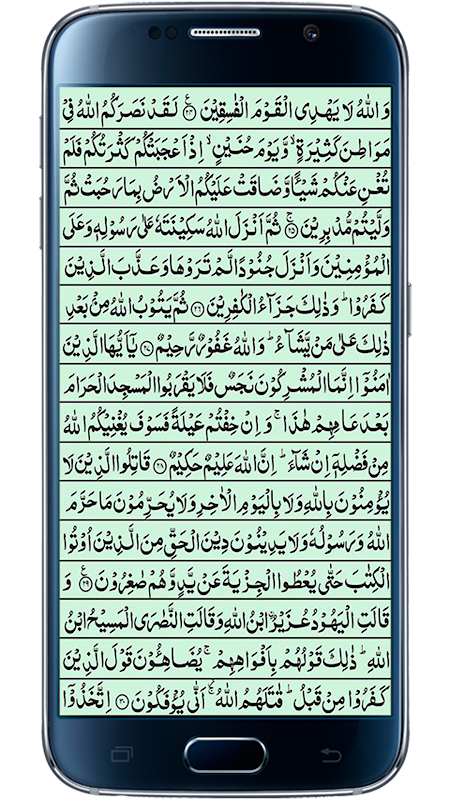 وَاللّٰهُ لَا يَهْدِی الْقَوْمَ الْفٰسِقِيْنَ ۝۲۴ لَقَدْ نَصَرَكُمُ اللّٰهُ فِیْ
مَوَاطِنَ كَثِيْرَةٍ ۙ وَّيَوْمَ حُنَيْنٍ ۙ اِذْ اَعْجَبَتْكُمْ كَثْرَتُكُمْ فَلَمْ
تُغْنِ عَنْكُمْ شَيْـًٔا وَّضَاقَتْ عَلَيْكُمُ الْاَرْضُ بِمَا رَحُبَتْ ثُمَّ
وَلَّيْتُمْ مُّدْبِرِيْنَ ۝۲۵ ثُمَّ اَنْزَلَ اللّٰهُ سَكِيْنَتَهٗ عَلٰی رَسُوْلِهٖ وَعَلَی
الْمُؤْمِنِيْنَ وَاَنْزَلَ جُنُوْدًا لَّمْ تَرَوْهَا وَعَذَّبَ الَّذِيْنَ
كَفَرُوْا ؕ وَذٰلِكَ جَزَآءُ الْكٰفِرِيْنَ ۝۲۶ ثُمَّ يَتُوْبُ اللّٰهُ مِنْۢ بَعْدِ
ذٰلِكَ عَلٰی مَنْ يَّشَآءُ ؕ وَاللّٰهُ غَفُوْرٌ رَّحِيْمٌ ۝۲۷ يٰۤاَيُّهَا الَّذِيْنَ
اٰمَنُوْۤا اِنَّمَا الْمُشْرِكُوْنَ نَجَسٌ فَلَا يَقْرَبُوا الْمَسْجِدَ الْحَرَامَ
بَعْدَ عَامِهِمْ هٰذَا ۚ وَاِنْ خِفْتُمْ عَيْلَةً فَسَوْفَ يُغْنِيْكُمُ اللّٰهُ
مِنْ فَضْلِهٖۤ اِنْ شَآءَ ؕ اِنَّ اللّٰهَ عَلِيْمٌ حَكِيْمٌ ۝۲۸ قَاتِلُوا الَّذِيْنَ لَا
يُؤْمِنُوْنَ بِاللّٰهِ وَلَا بِالْيَوْمِ الْاٰخِرِ وَلَا يُحَرِّمُوْنَ مَا حَرَّمَ
اللّٰهُ وَرَسُوْلُهٗ وَلَا يَدِيْنُوْنَ دِيْنَ الْحَقِّ مِنَ الَّذِيْنَ اُوْتُوا
الْكِتٰبَ حَتّٰی يُعْطُوا الْجِزْيَةَ عَنْ يَّدٍ وَّهُمْ صٰغِرُوْنَ ۝۲۹ وَ
قَالَتِ الْيَهُوْدُ عُزَيْرُ ۨابْنُ اللّٰهِ وَقَالَتِ النَّصٰرَی الْمَسِيْحُ ابْنُ
اللّٰهِ ؕ ذٰلِكَ قَوْلُهُمْ بِاَفْوَاهِهِمْ ۚ يُضَاهِـُٔوْنَ قَوْلَ الَّذِيْنَ
كَفَرُوْا مِنْ قَبْلُ ؕ قٰتَلَهُمُ اللّٰهُ ۚ اَنّٰی يُؤْفَكُوْنَ ۝۳۰ اِتَّخَذُوْۤا